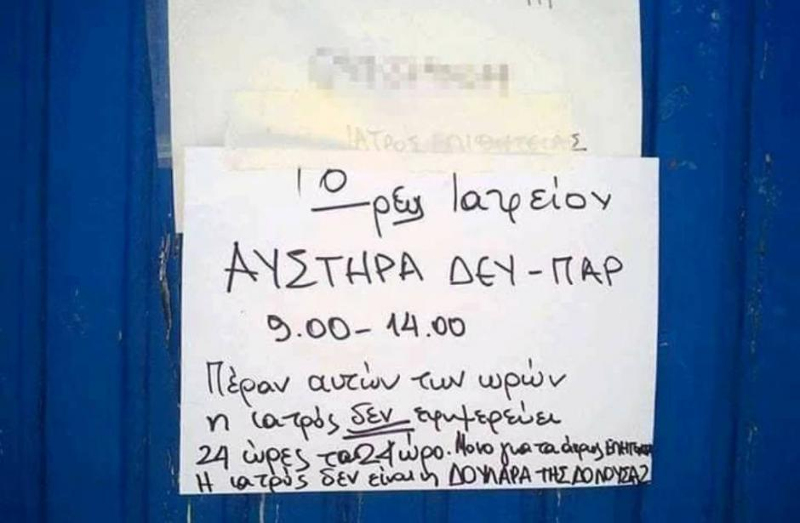 ΙΑΤΡΟΣ ΕΠΙΘΗΤΕΙΑΣ
Ώρες Ιατρείου
ΑΥΣΤΗΡΑ ΔΕΥ-ΠΑΡ
9.00-14.00
Πέραν αυτών των ωρών
η ιατρός δεν εφημερεύει
24 ώρες το 24ωρο. Μονο για τα άκρως ΕΠΕΙΓΟΝΤΑ
Η ιατρός δεν είναι η ΔΟΥΛΑΡΑ ΤΗΣ ΔΟΝΟΥΣΑΣ